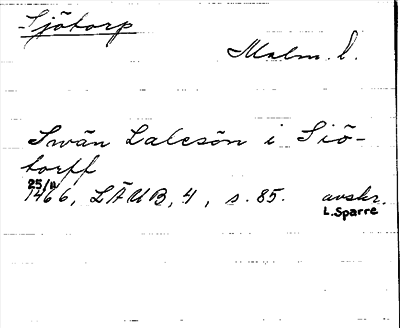 Sjötorp
Malm. l.
Swän Laleson i Siö-
torpp
25/11
1466, LÄUB, 4, s. 85. avskr.
L. Sparre